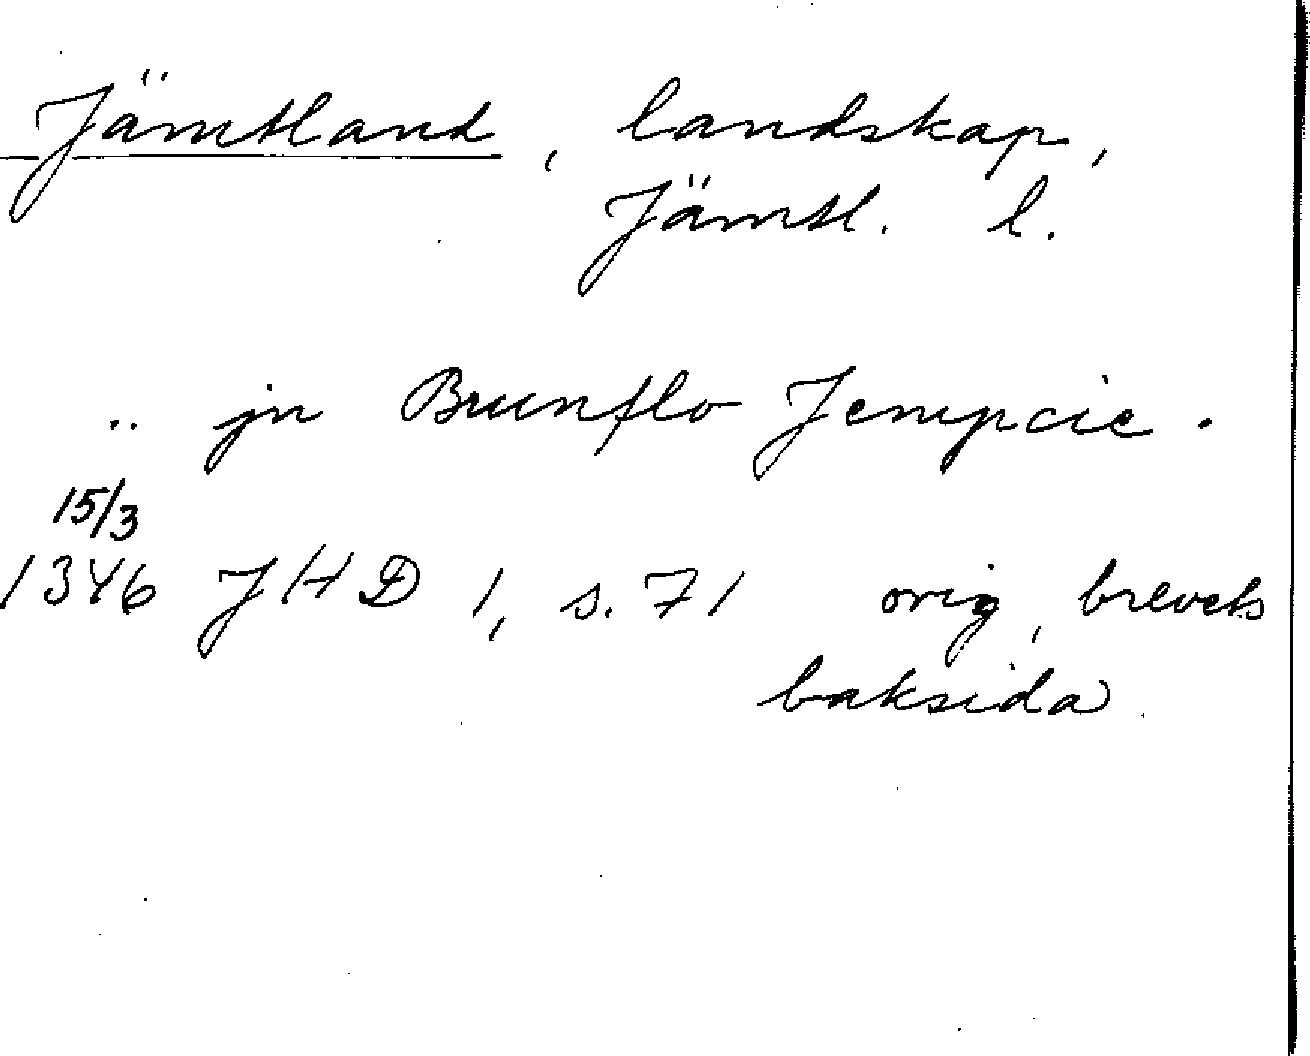 Jämtland, landskap,
Jämtl. l.
.. jn Brunflo Jempcie.
15/3
1346 JHD 1, s. 71 orig, brevets
baksida